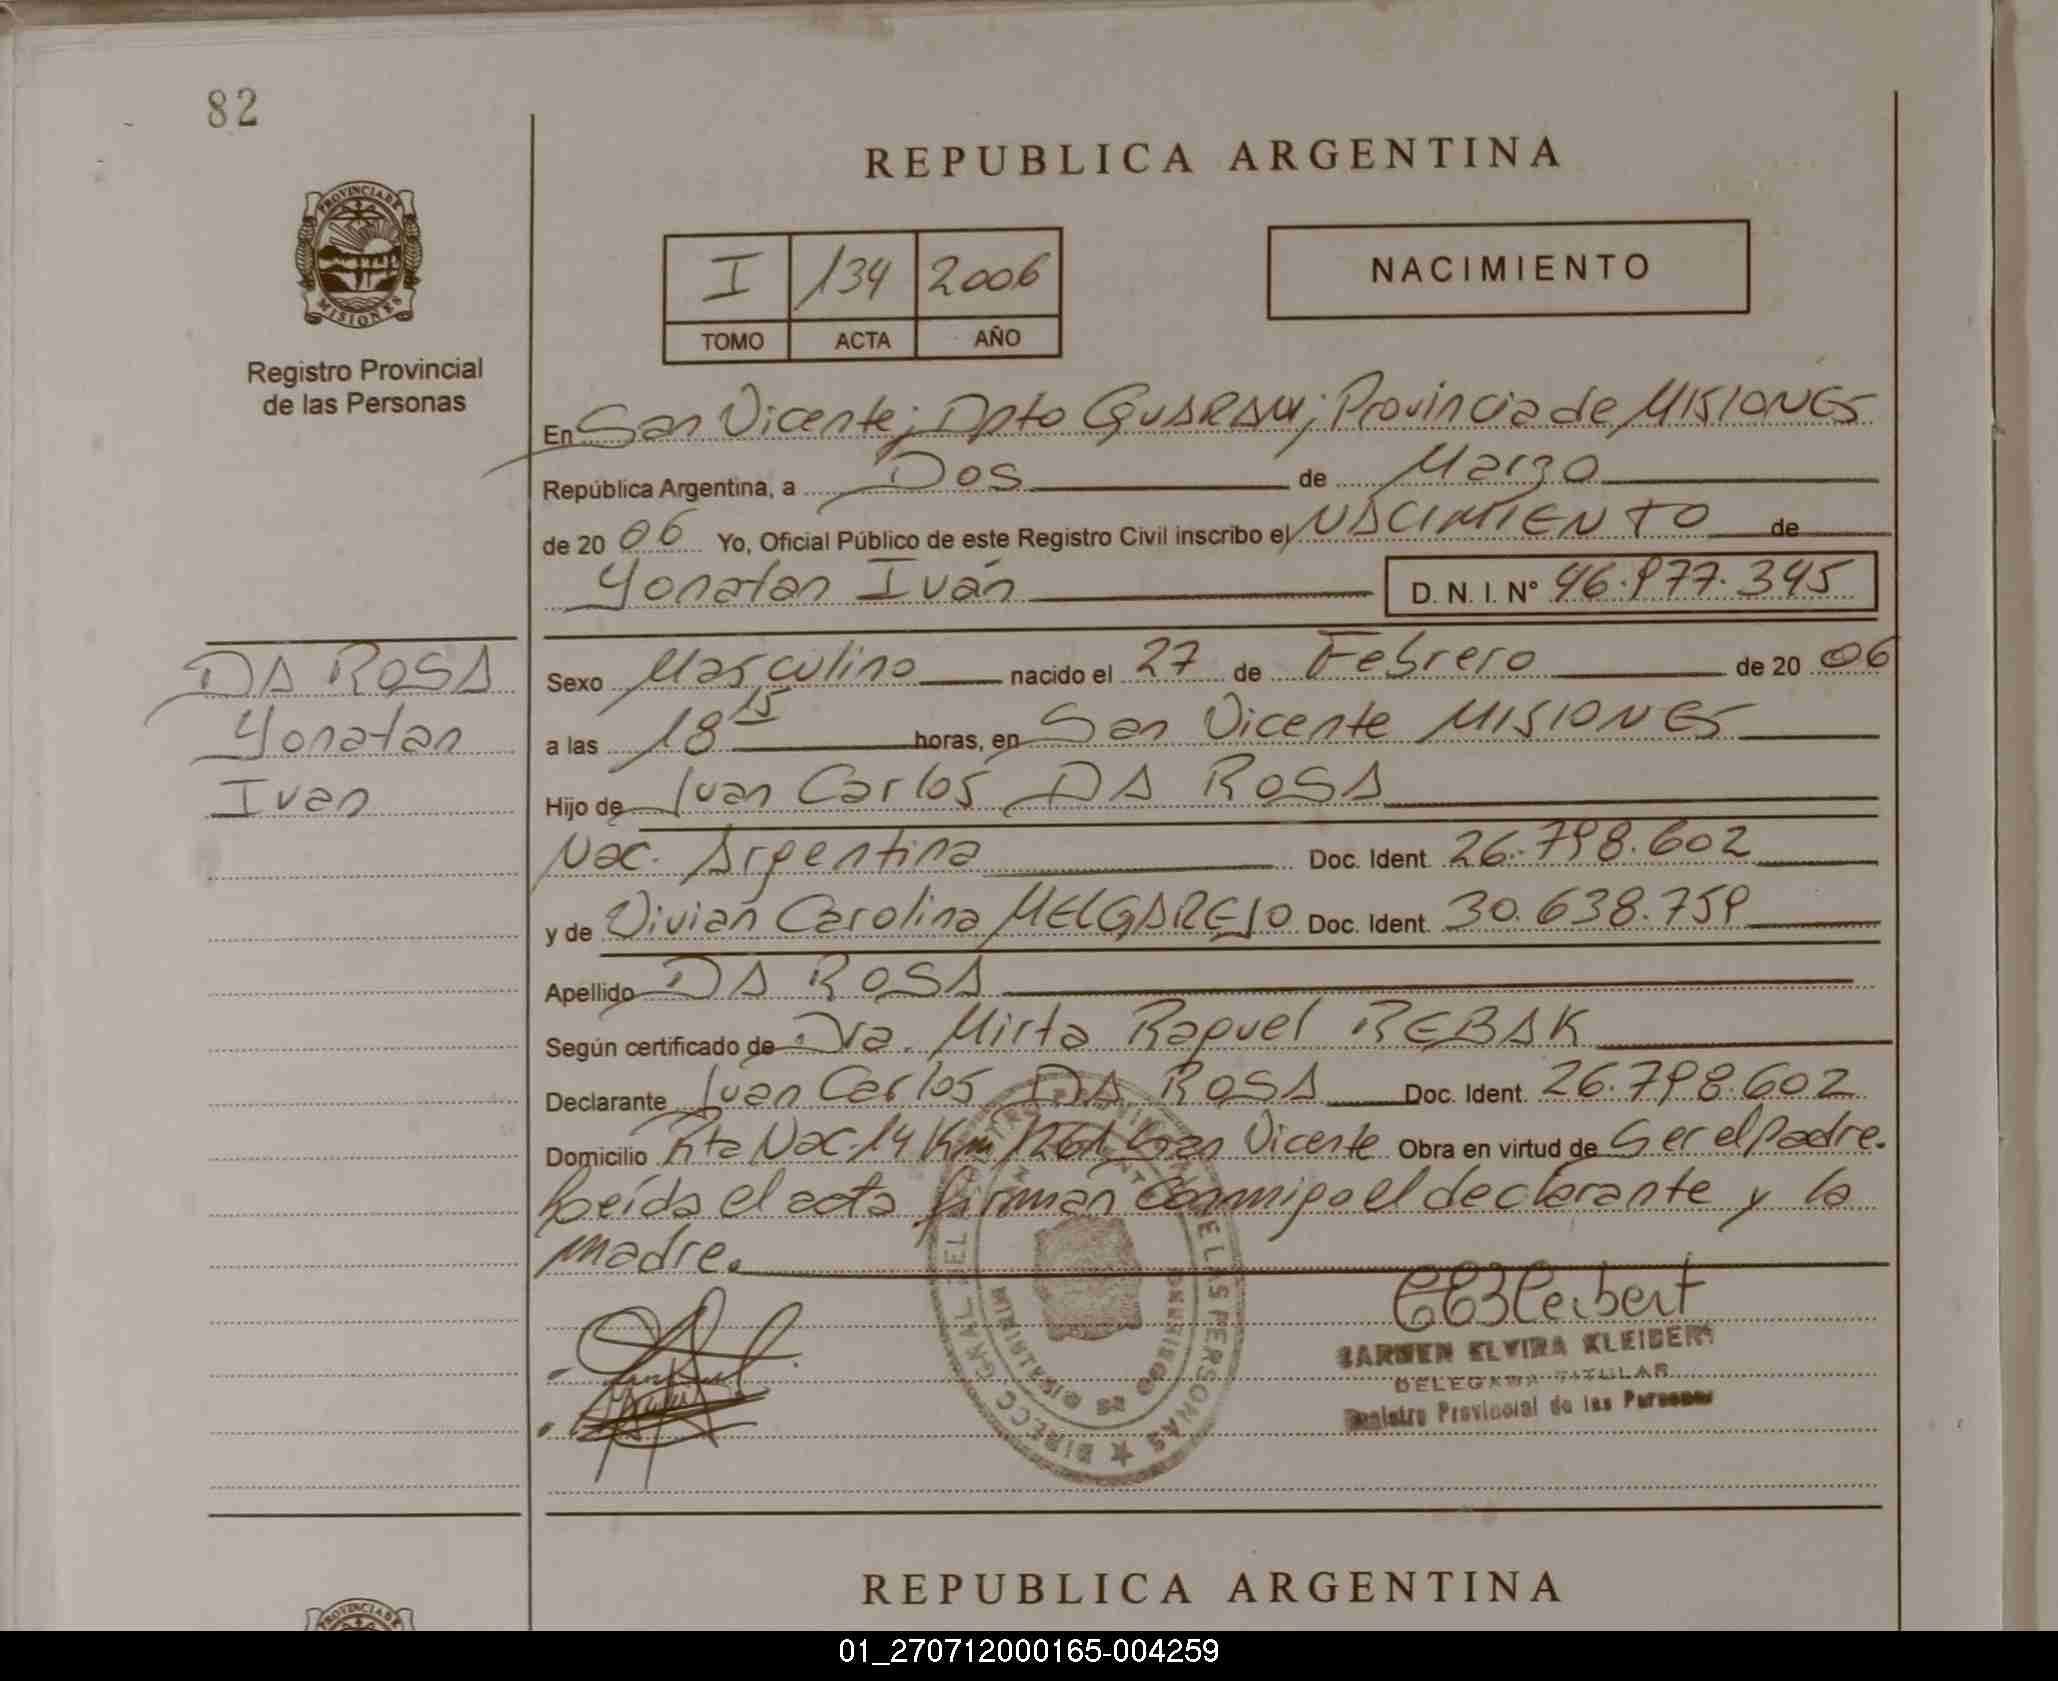 82
REPUBLICA ARGENTINA
PROVINCIA DE
MISIONES
Registro Provincial
de las Personas
I 134 2006
TOMO ACTA AÑO
NACIMIENTO
En San Vicente; Dpto GUARANI; Provincia de MISIONES
República Argentina, a Dos de Marzo
de 2006 Yo, Oficial Público de este Registro Civil inscribo el NACIMIENTO de
Yonatan Iván D. N. I. Nº 46.977.345
DA ROSA
Yonatan
Ivan
Sexo Masculino nacido el 27 de Febrero de 2006
a las 18 15 horas, en San Vicente MISIONES
Hijo de Juan Carlos DA ROSA
Nac. Argentina Doc. Ident. 26.798.602
y de Vivian Carolina MELGAREJO Doc. Ident. 30.638.759
Apellido DA ROSA
Según certificado de Dra. Mirta Raquel REBAK
Declarante Juan Carlos DA ROSA Doc. Ident. 26.798.602
Domicilio Rta Nac 14 Km 1261 San Vicente Obra en virtud de Ser el padre.
Leída el acta firman conmigo el declarante y la
madre.
CARMEN ELVIRA KLEIBERT
DELEGADA TITULAR
Registro Provincial de las Personas
REPUBLICA ARGENTINA
PROVINCIA DE
01_270712000165-004259